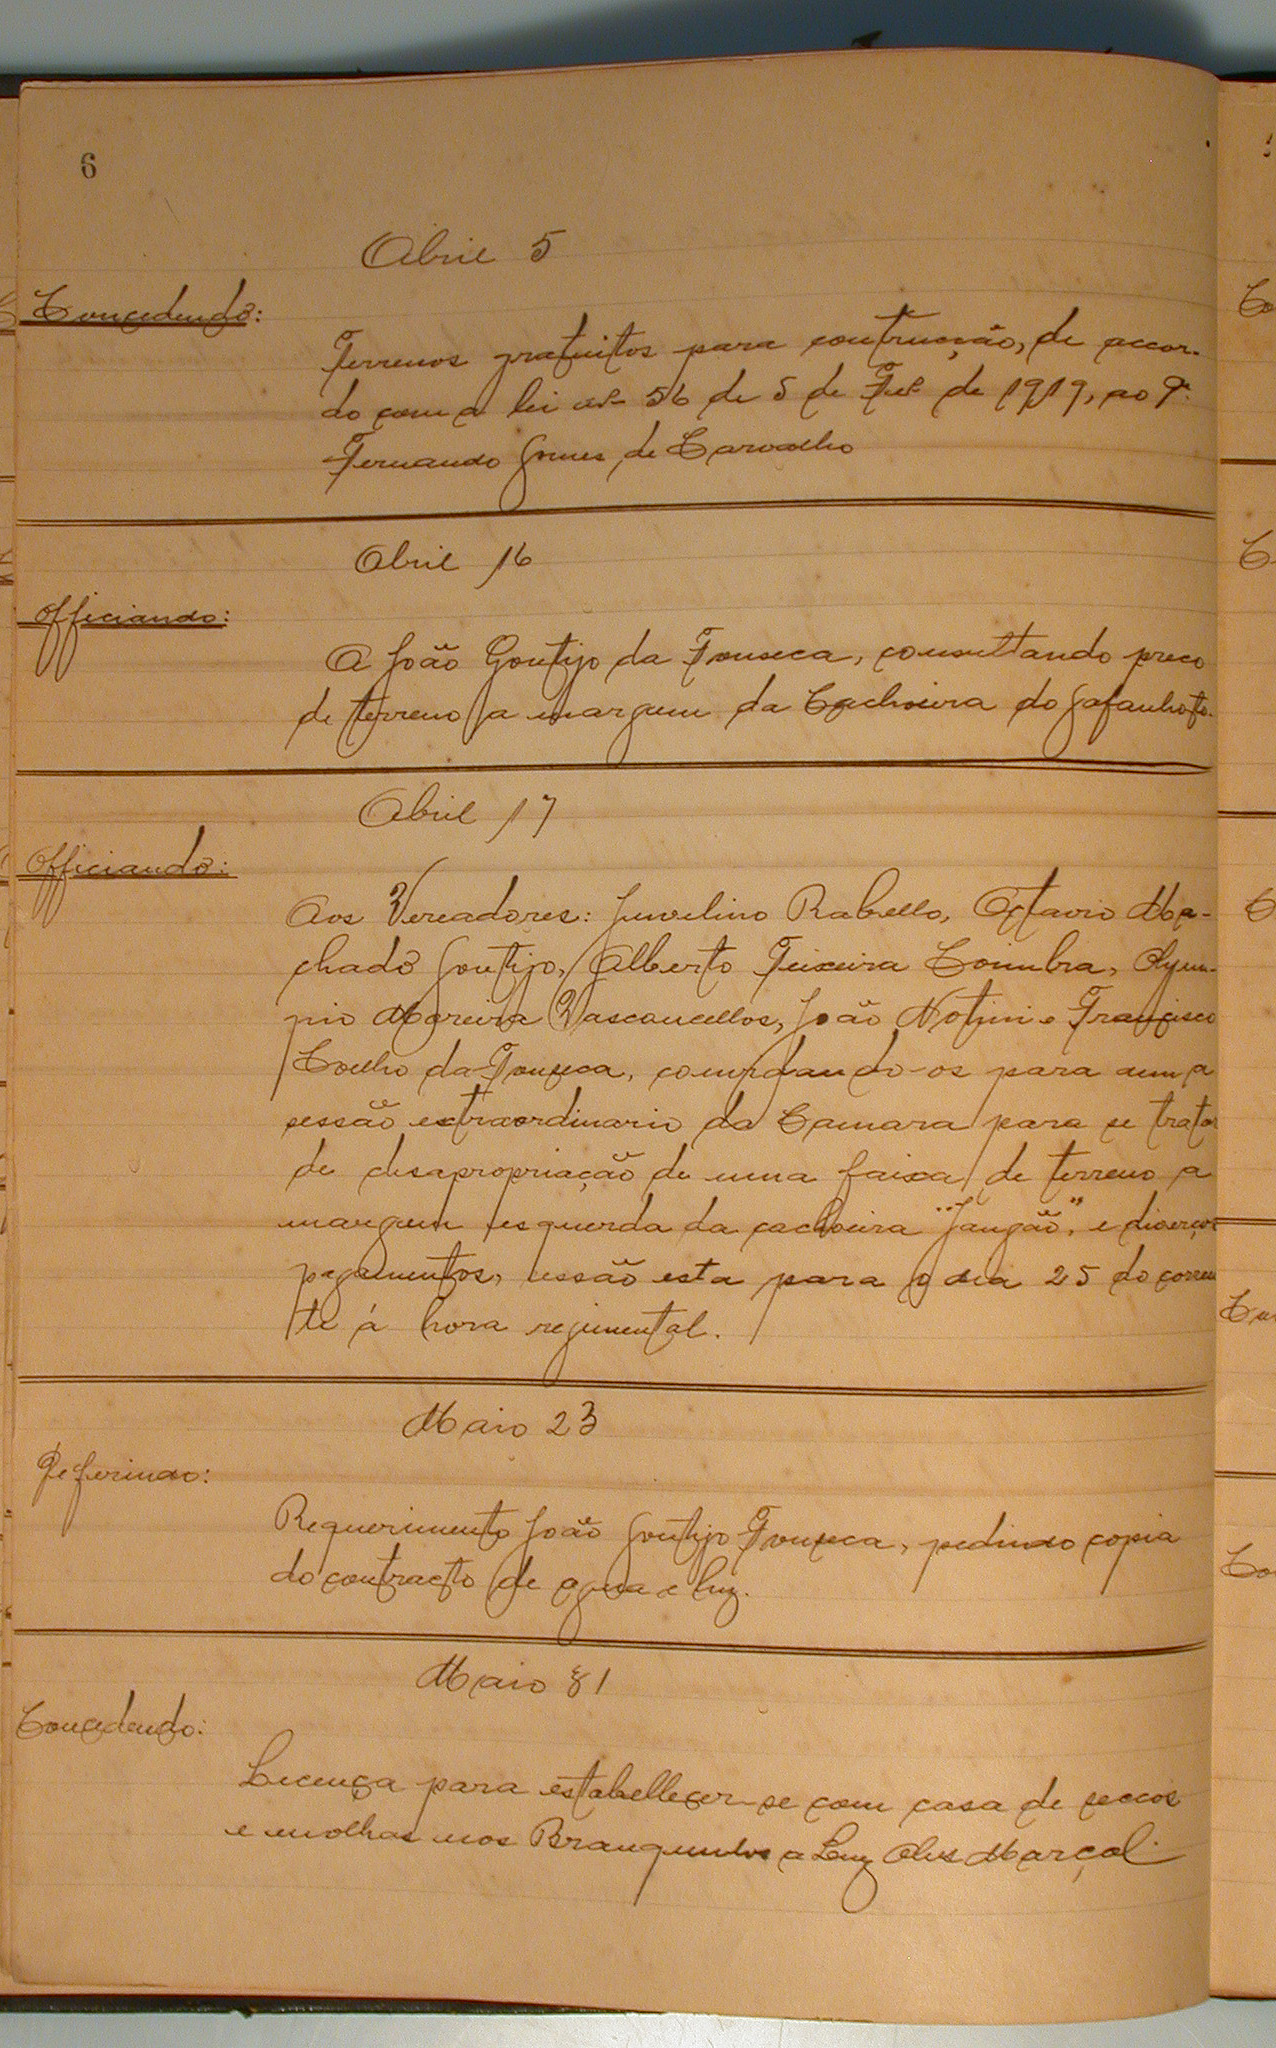 6
Abril 5
Concedendo:
Terrenos gratuitos para contrucção, de accor-
do com a lei nº 56 de 5 de de 1919, ao
Fernando Gomes de Carvalho
Abril 16
Officiando:
A João Gontijo da Fonseca, consultando preco
de terreno a margem da Cachoeira do Gafanhoto.
Abril 17
Officiando:
Aos Vereadores: Juvelino Rabello, Octavio Ma-
chado Gontijo, Alberto Teixeira Coimbra, Olym-
pio Moreira Vasconcellos, João Notini e Francisco
Coelho da Fonseca, convidando-os para uma
sessão extraordinario da Camara para se tratar
de desapropriação de uma faixa de terreno a
margem esquerda da cachoeira " e diverços
pagamentos, sessão esta para o dia 25 do corren
te á hora regimental.
Maio 23
Deferindo:
Requerimento João Gontijo Fonseca, pedindo copia
do contracto de agua e luz.
Maio 31
Concedendo:
Licença para estabellecer-se com casa de seccos
e molhas nos Branquinhos a Luiz Alves Marçal